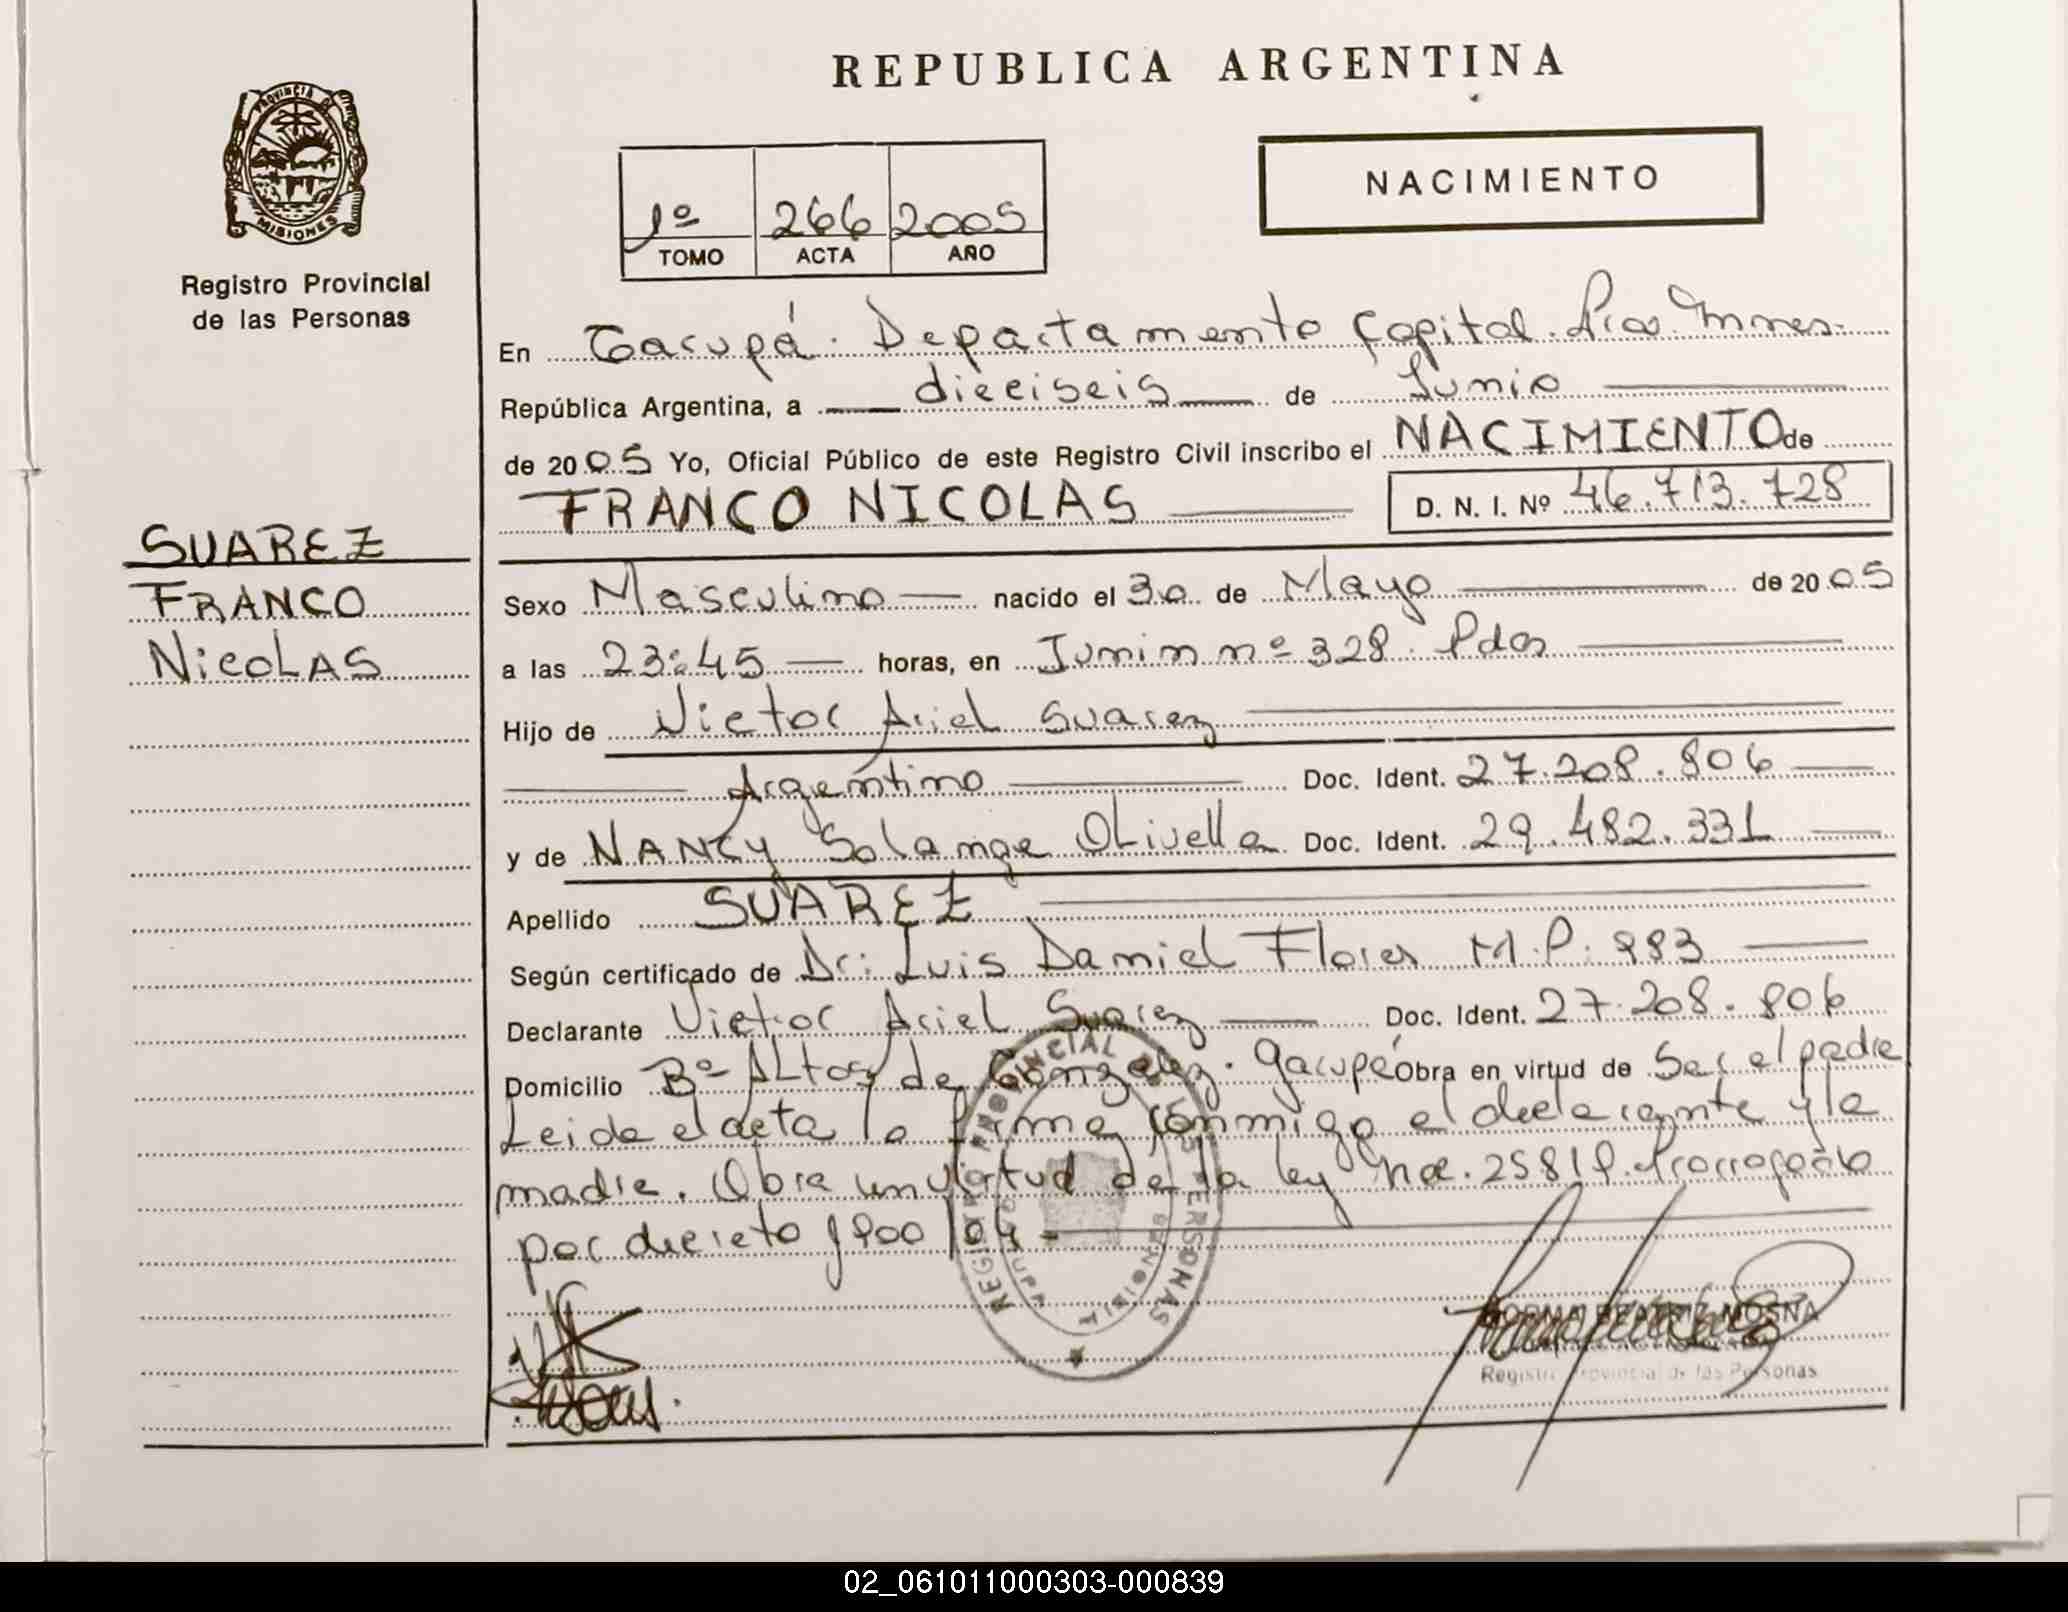 REPUBLICA ARGENTINA
PROVINCIA DE
MISIONES
Registro Provincial
de las Personas
1º 266 2005
TOMO ACTA AÑO
NACIMIENTO
En Garupá. Departamento Capital. Mnes.
República Argentina, a dieciseis de Junio
de 2005 Yo, Oficial Público de este Registro Civil inscribo el NACIMIENTO de
FRANCO NICOLAS D. N. I. Nº 46.713.728
SUAREZ
FRANCO
NicoLAS
Sexo Masculino nacido el 30 de Mayo de 2005
a las 23:45 horas, en Junin nº 328. Pdas
Hijo de Victor Ariel Suarez
Argentino Doc. Ident. 27.208.806
y de NANCY Solange OLivella Doc. Ident. 29.482.331
Apellido SUAREZ
Según certificado de Dr: Luis Daniel Flores M.P. 983
Declarante Victor Ariel Suarez Doc. Ident. 27.208.806
Domicilio Bº ALtos de Gonzalez. Garupá Obra en virtud de Ser el padre
Leida el acta la firma conmigo el declarante y la
madre. Obra en virtud de la ley 25819.
por decreto 1900/04
REGISTRO PROVINCIAL DE LAS PERSONAS
NORMA BEATRIZ MOSNA
Registro Provincial de las Personas
02_061011000303-000839